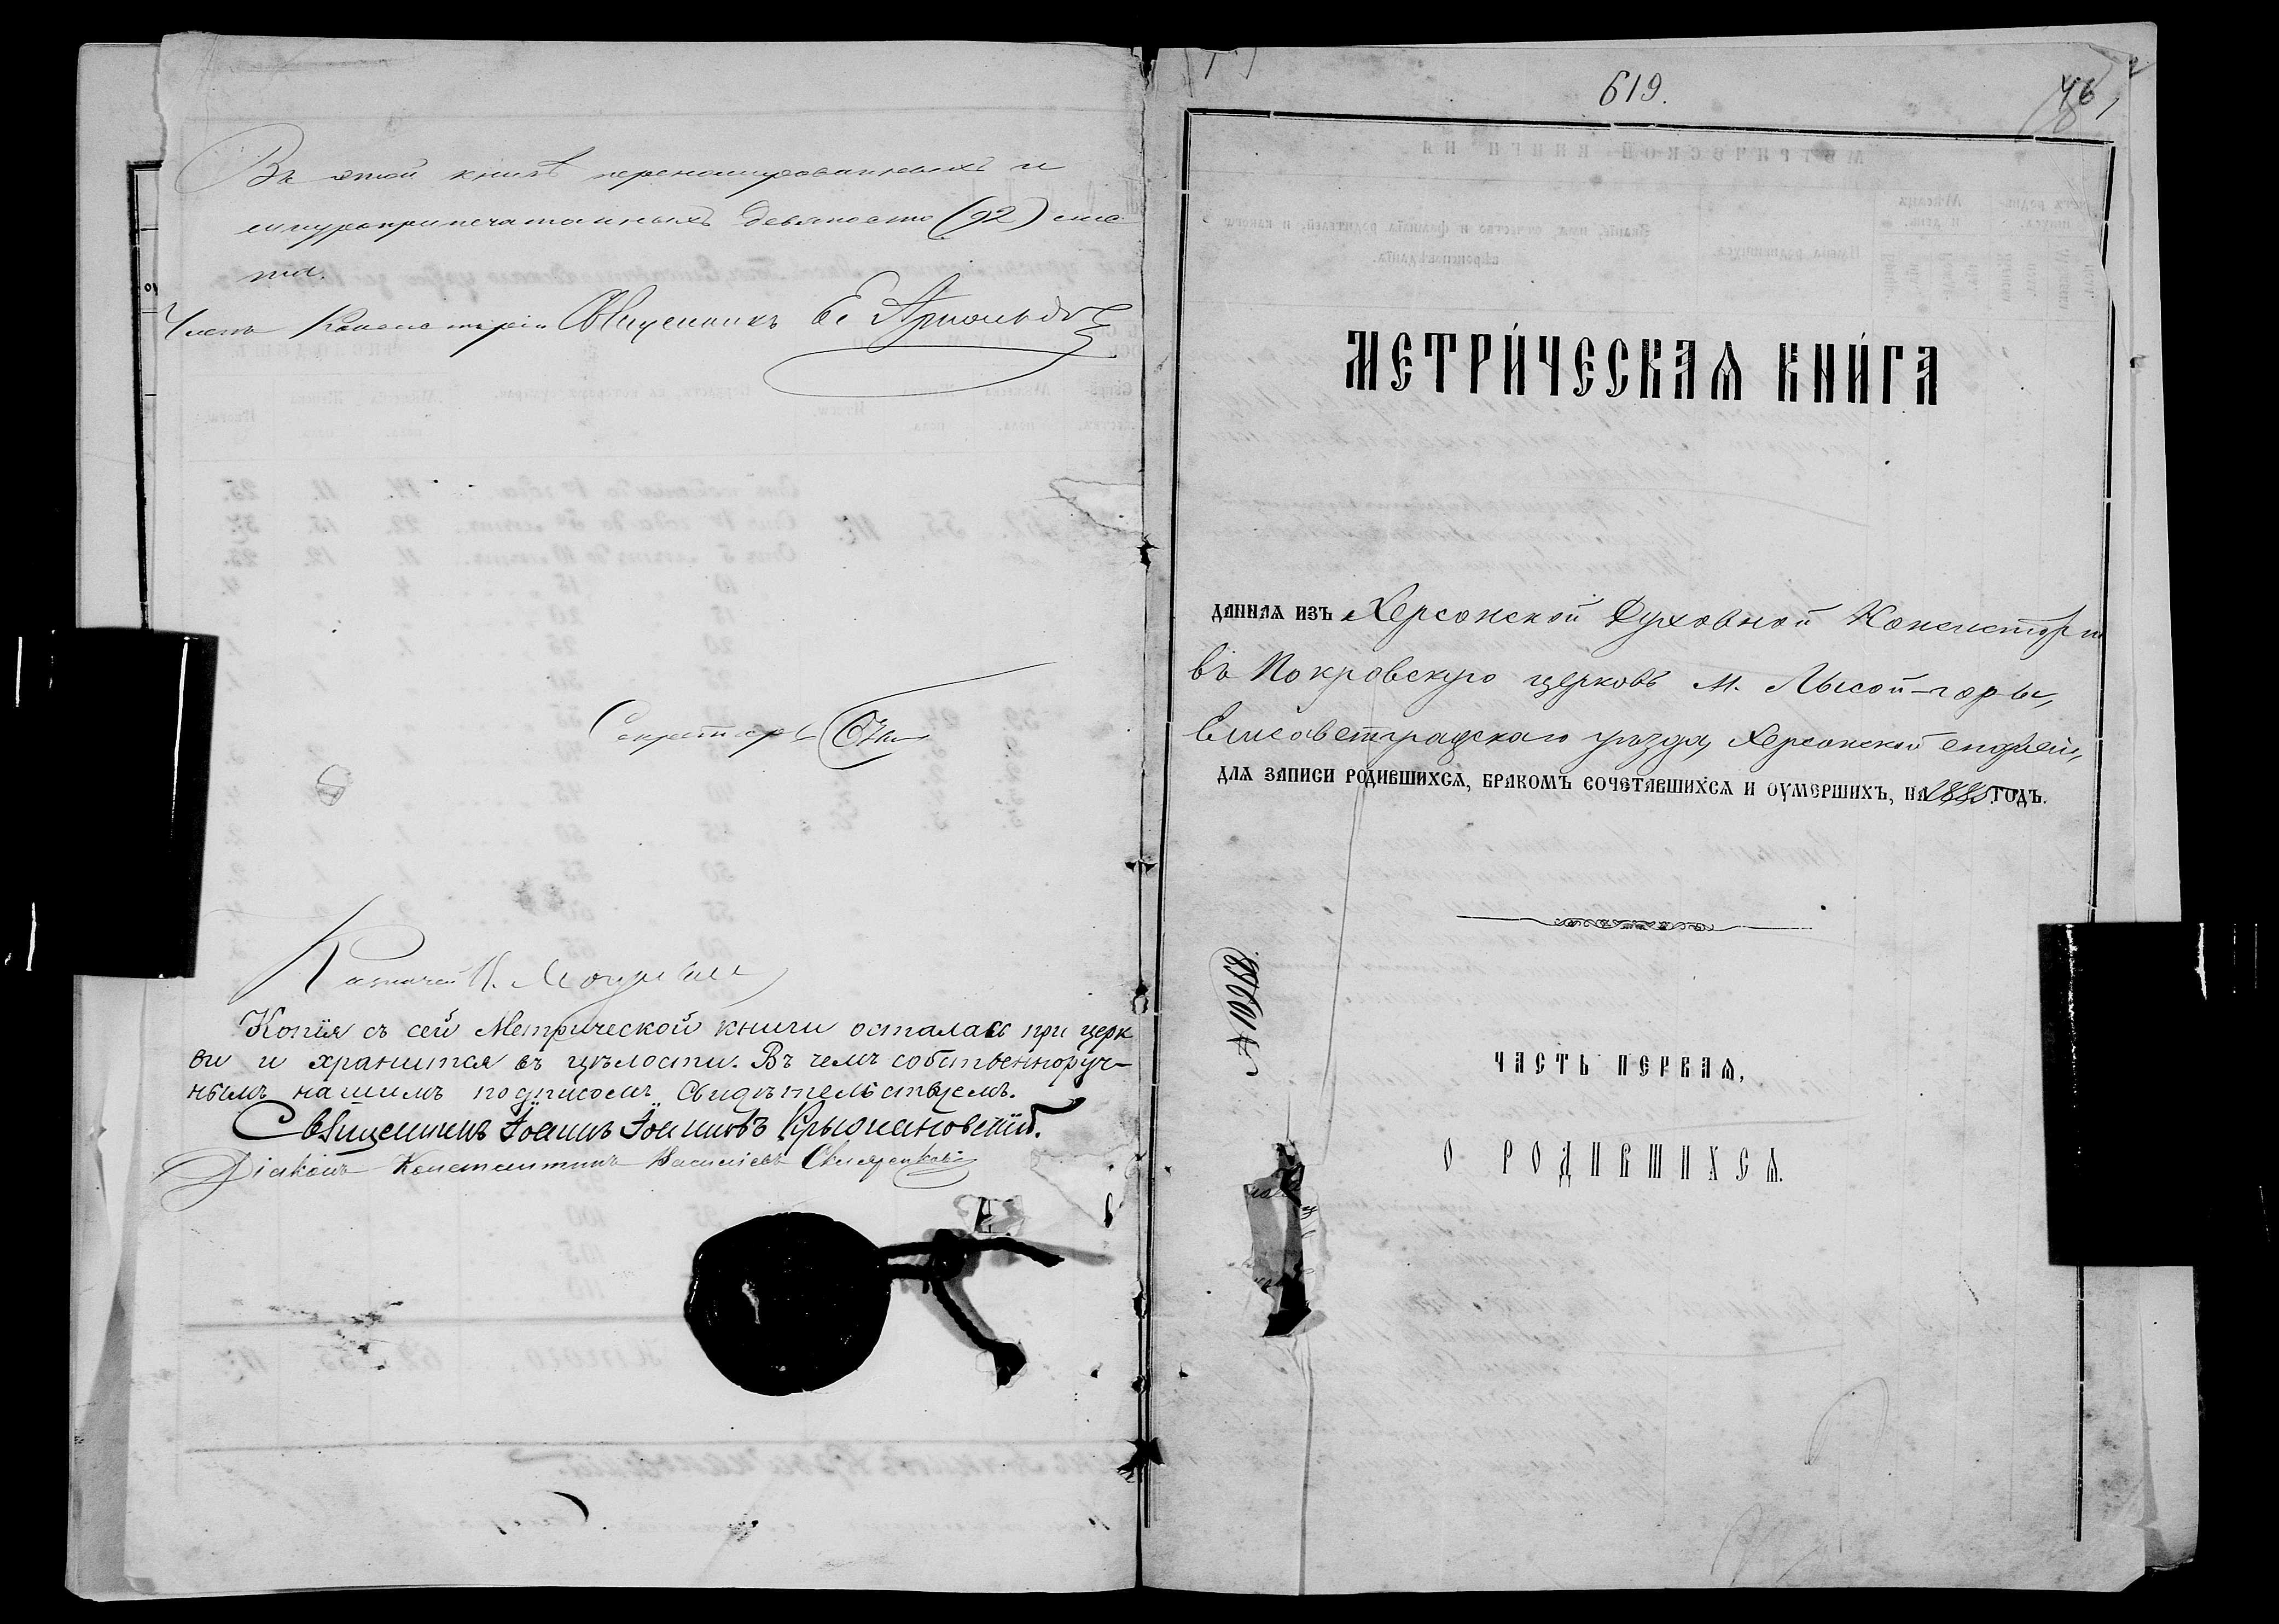 Въ этой книгѣ перенумерованныхъ и
шнуроприпечатанныхъ девяносто (92) лис
та.
Членъ Консисторіи Священникъ
Секретарь
Казначей
Копія съ сей Метрической книги осталась при церк
ви и хранится въ цѣлости. Въ чемъ собственноруч-
нымъ нашимъ подписомъ свидѣтельствуемъ.
Священникъ Іоаннъ Іоанновъ Крыжановскій.
Діаконъ Константинъ Василіевъ
619.
46
МЕТРИ́ЧЕСКАѦ КНИ́ГА
ДАННАѦ ИЗЪ Херсонской Духовной Консисторіи
въ Покровскую церковь м. Лысой-горы,
Елисаветградскаго уѣзда, Херсонской епархіи,
ДЛѦ ЗАПИСИ РОДИВШИХСѦ, БРАКОМЪ СОЧЕТАВШИХСѦ И ОУМЕРШИХЪ, НА 1885 ГОДЪ.
ЧАСТЬ ПЕРВАѦ,
О РОДИВШИХСѦ.